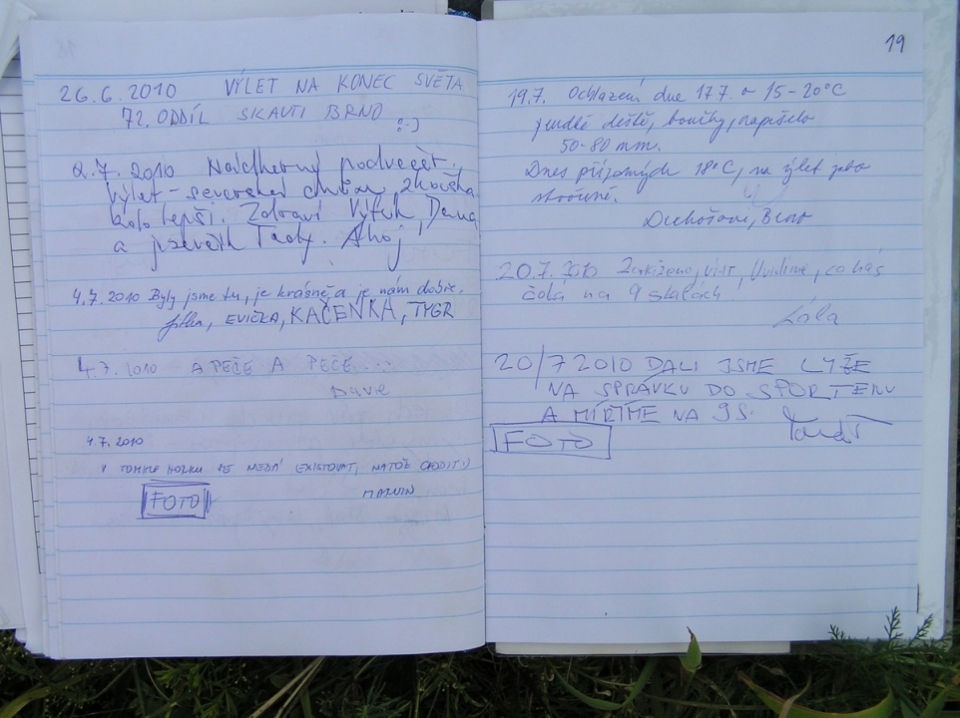 26.6.2010 VÝLET NA KONEC SVĚTA
72. ODDÍL SKAUTI BRNO :-)
2.7.2010 Nádherný podvečer.
Výlet - severské chůze, zkouška
kolo lepší. Zdraví Výfuk, Dana
a Tady. Ahoj
4.7.2010 Byly jsme tu, je krásně a je nám dobře.
Jitka, EVIČKA, KAČENKA, TYGR
4.7.2010 A PEČE A PEČE...
Dave
4.7.2010
V TOMHLE HORKU SE NEDÁ EXISTOVAT, NATOŽ CHODIT :)
FOTO MARVIN
19
19.7. Ochlazení dne 17.7. o 15-20°C
deště, bouřky, napršelo
50-80 mm.
Dnes příjemných 18°C, na výlet jako
stvořené.
Brno
20.7.2010 co nás
čeká na 9 skalách
Lála
20/7 2010 DALI JSME LYŽE
NA SPRÁVKU DO SPORTENU
A MÍŘÍME NA 9S.
FOTO